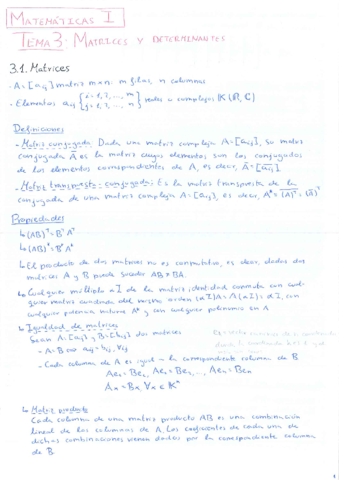 MATEMÁTICAS I
TEMA 3: MATRICES Y DETERMINANTES
3.1. Matrices
· A = [aij] matriz m×n: m filas, n columnas
· Elementos aij { i = 1, 2, ..., m
j = 1, 2, ..., n } reales o complejos K (R, C)
Definiciones
- Matriz conjugada: Dada una matriz compleja A = [aij], su matriz
conjugada Ā es la matriz cuyos elementos son los conjugados
de los elementos correspondientes de A, es decir, Ā = [āij].
- Matriz transpuesta-conjugada: Es la matriz transpuesta de la
conjugada de una matriz compleja A = [aij], es decir, A* = (Ā)ᵀ = (Ā)ᵀ
Propiedades
↳ (AB)ᵀ = BᵀAᵀ
↳ (AB)* = B*A*
↳ El producto de dos matrices no es conmutativo, es decir, dadas dos
matrices A y B puede suceder AB ≠ BA.
↳ Cualquier múltiplo αI de la matriz identidad conmuta con cual-
quier matriz cuadrada del mismo orden (αI)A = A(αI) = αA, con
cualquier potencia natural Aᵏ y con cualquier polinomio en A
↳ Igualdad de matrices
Sean A = [aij] y B = [bij] dos matrices:
- A = B ⟺ aij = bij, ∀i,j
- Cada columna de A es igual a la correspondiente columna de B
Ae₁ = Be₁, Ae₂ = Be₂, ..., Aeₙ = Beₙ
Ax = Bx ∀x ∈ Kⁿ
↳ Matriz producto
Cada columna de una matriz producto AB es una combinación
lineal de las columnas de A. Los coeficientes de cada una de
dichas combinaciones vienen dados por la correspondiente columna
de B.